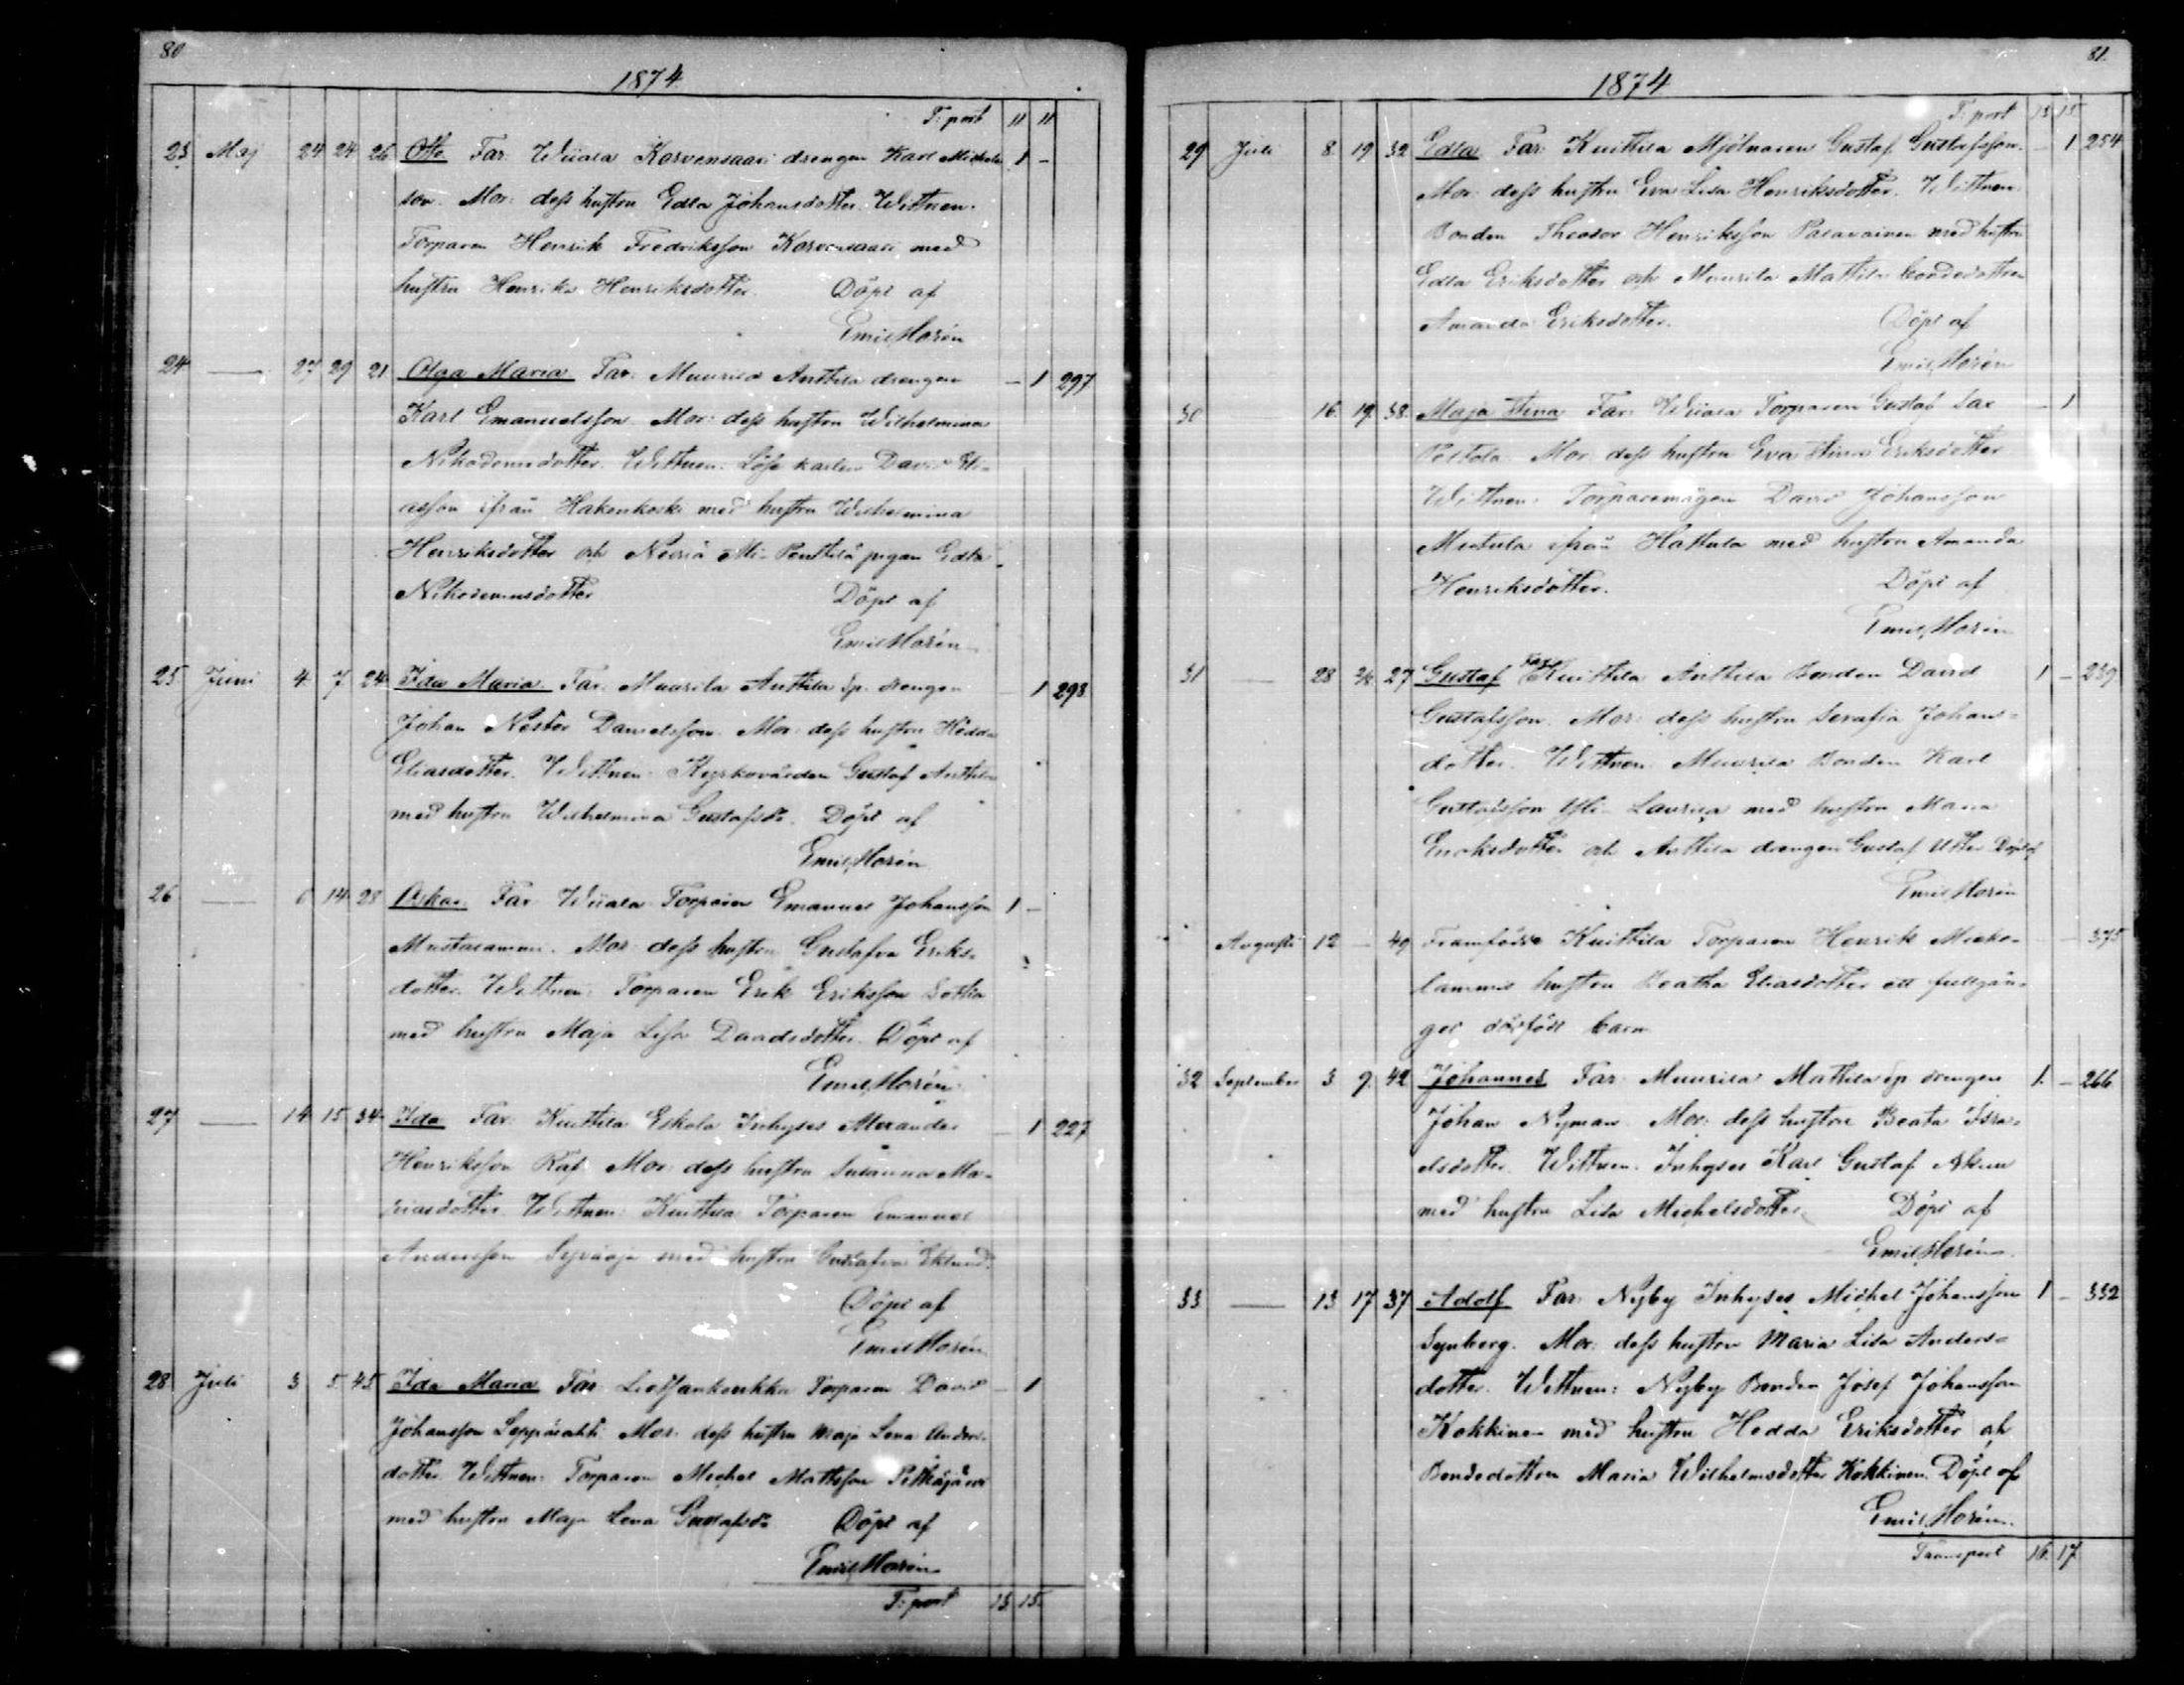 80
1874
T: port 11 11
23 Maj 24 24 26 Otto Far: Wiiala Korvensaari drengen Karl Michels 1 –
son. Mor: dess hustru Edla Johansdotter. Wittnen:
Torparen Henrik Fredriksson Korvensaari med
hustru Henrika Henriksdotter. Döpt af
Emil Horén
24 — 27 29 21 Olga Maria Far: Muurila Anttila drengen – 1 297
Karl Emanuelsson. Mor: dess hustru Wilhelmina
Nikodemsdotter. Wittnen: Löse karlen David Eli-
asson ifrån Hakonkoski med hustru Wilhelmina
Henriksdotter och Penttilä pigan Edla
Nikodemusdotter Döpt af
Emil Horén
25 Juni 4 7 24 Ida Maria. Far: Muurila Anttila Sp. drengen – 1 298
Johan Nestor Danielsson. Mor: dess hustru Hedda
Eliasdotter. Wittnen: Kyrkovärden Gustaf Anttila
med hustru Wilhelmina Gustafsdr. Döpt af
Emil Horén
26 — 6 14 28 Oskar Far: Wiiala Torparen Emanuel Johansson 1 –
Mustalammi. Mor: dess hustru Gustafva Eriks-
dotter. Wittnen: Torparen Erik Eriksson
med hustru Maja Lisa Davidsdotter. Döpt af
Emil Horén
27 — 14 15 34 Ida Far: Knuttila Eskola Inhyses Alexander – 1 227
Henriksson Raf. Mor: dess hustru Susanna Ma-
thiasdotter. Wittnen: Knuttila Torparen Emanuel
Andersson Syväoja med hustru Gustafva Eklund.
Döpt af
Emil Horén
28 Juli 3 5 45 Ida Maria Far: Torparen David – 1
Johansson Leppälahti. Mor: dess hustru Maja Lena Anders-
dotter. Wittnen: Torparen Michel Mattsson Pitkäjärvi
med hustru Maja Lena Gustafsdr. Döpt af
Emil Horén
T: port 13 15.
81.
1874
T: port 13 15
29 Juli 8 19 32 Edla Far: Knuttila Mjölnaren Gustaf Gustafsson. – 1 254
Mor: dess hustru Eva Lisa Henriksdotter. Wittnen:
Bonden Theodor Henriksson Palavainen med hustru
Edla Eriksdotter och Muurila Mattila bondedottren
Amanda Eriksdotter. Döpt af
Emil Horén
30 16 19 38 Maja Stina Far: Wiiala Torparen Gustaf Lax – 1
Mor: dess hustru Eva Stina Eriksdotter
Wittnen: Torparemågen David Johansson
ifrån Hattula med hustru Amanda
Henriksdotter. Döpt af
Emil Horén
31 — 28 2/8 27 Gustaf Far: Knuttila Anttila Bonden David 1 – 239
Gustafsson. Mor: dess hustru Serafia Johans-
dotter. Wittnen: Muurila Bonden Karl
Gustafsson Yli-Laurila med hustru Maria
Enoksdotter och Anttila drengen Gustaf Döpt af
Emil Horén
Augusti 12 – 49 Framfödde Knuttila Torparen Henrik – 375
lammis hustru Beatha Eliasdotter ett fullgån-
get dödfödt barn
32 September 3 9 42 Johannes Far: Muurila Mattila Sp drengen 1. – 266
Johan Nyman. Mor: dess hustru Beata Isra-
elsdotter. Wittnen: Inhyses Karl Gustaf
med hustru Lisa Michelsdotter. Döpt af
Emil Horén
33 — 13 17 37 Adolf Far: Nyby Inhyses Michel Johansson 1 – 332
Synberg. Mor: dess hustru Maria Lisa Anders-
dotter. Wittnen: Nyby Bonden Josef Johansson
Kokkinen med hustru Hedda Eriksdotter och
Bondedottren Maria Wilhelmsdotter Kokkinen. Döpt af
Emil Horén.
Transport 16. 17